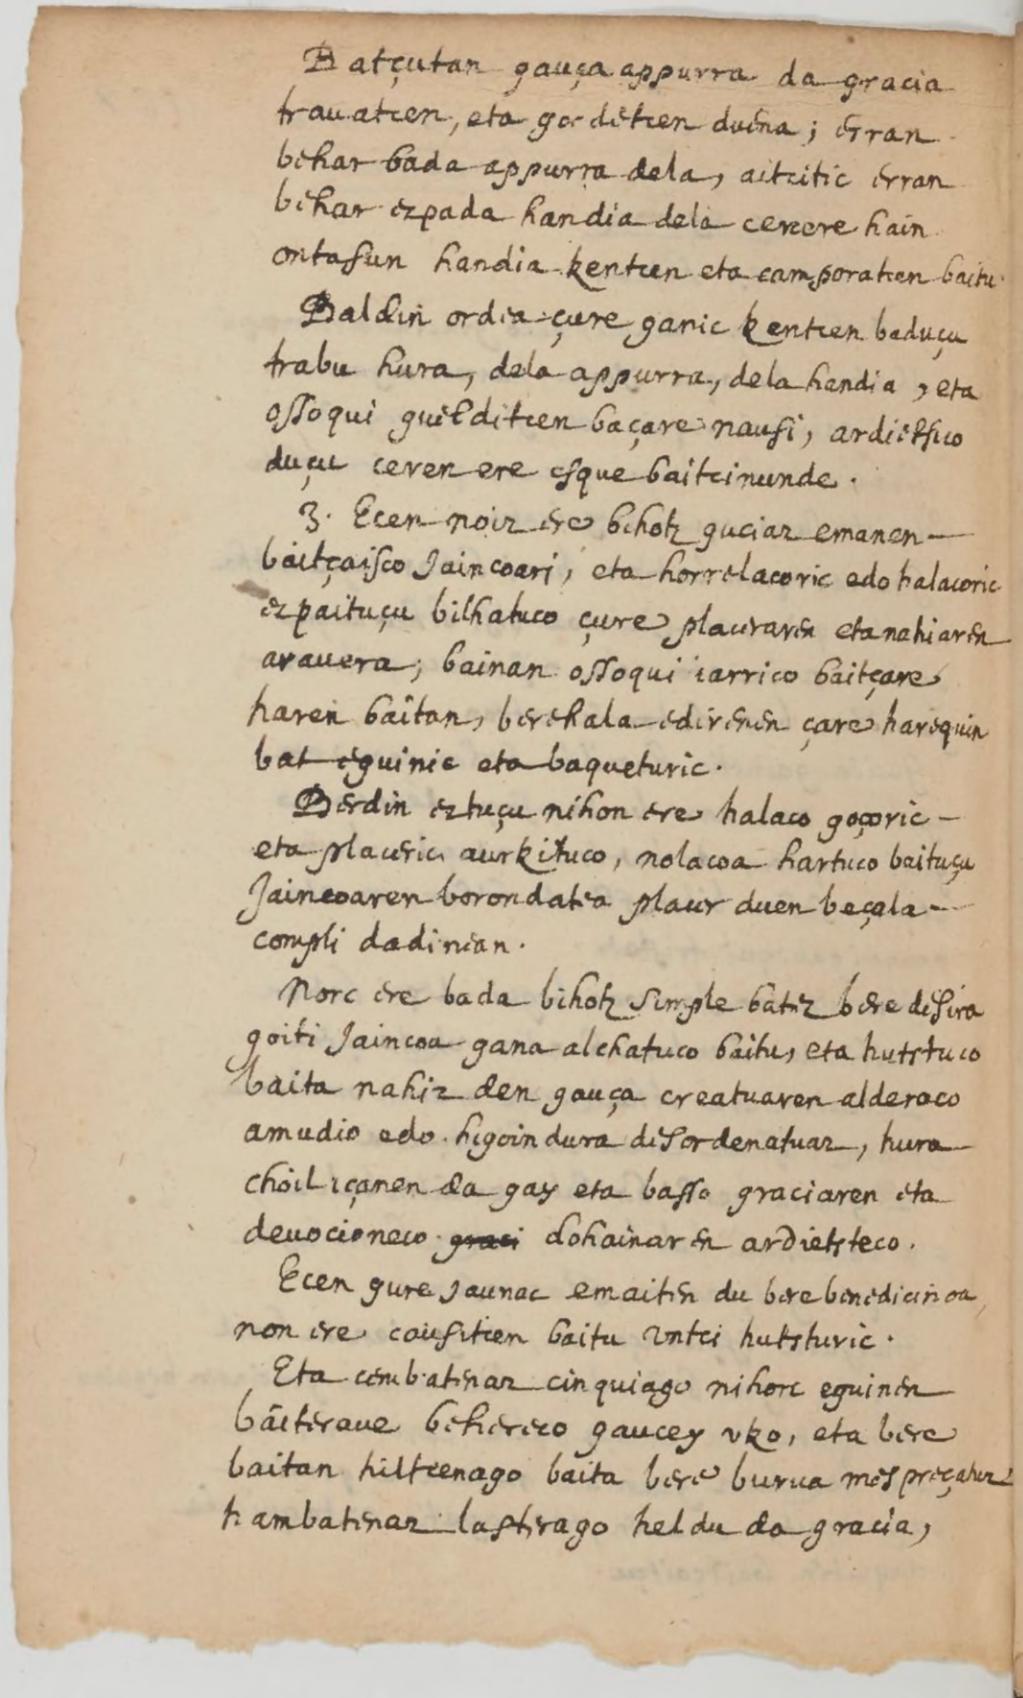 Batçutan gauça appurra da gracia
trauatcen, eta gorditcen duena; erran
behar bada appurra dela, aitcitic erran
behar ezpada handia dela cerere hain
ontasun handia kentcen eta camporatcen baitu.
Baldin ordea çure ganic kentcen baduçu
trabu hura, dela appurra, dela handia, eta
ossoqui guelditcen baçare nausi, ardietsico
duçu ceren ere esque baitcinunde.
3. Ecen noiz ere bihotz guciaz emanen
baitçaisco Jaincoari, eta horrelacoric edo halacoric
ezpaituçu bilhatuco çure placeraren eta nahiaren
arauera; bainan ossoqui iarrico baitçare
haren baitan, berehala edirenen çare harequin
bat eguinic eta baqueturic.
Berdin eztuçu nihon ere halaco goçoric
eta placeric aurkituco, nolacoa hartuco baituçu
Jaincoaren borondatea placer duen beçala
compli dadinean.
Norc ere bada bihotz simple batez bere desira
goiti Jaincoa gana alchatuco baitu, eta hutstuco
baita nahiz den gauça creatuaren alderaco
amudio edo higoindura desordenatuaz, hura
choil içanen da gay eta basso graciaren eta
deuocioneco graci dohainaren ardietsteco.
Ecen gure Jaunac emaiten du bere benedicinoa,
non ere causitcen baitu untci hutsturic.
Eta cembatenaz cinquiago nihorc eguinen
baiteraue behereco gaucey vko, eta bere
baitan hiltcenago baita bere burua mespreçatuz
hambatenaz lasterago heldu da gracia,